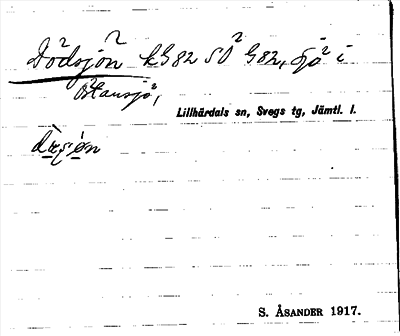 Dödsjön kG82 SO G82, sjö i
Östansjö,
Lillhärdals sn, Svegs tg, Jämtl. l.
dœsjøn
S. ÅSANDER 1917.